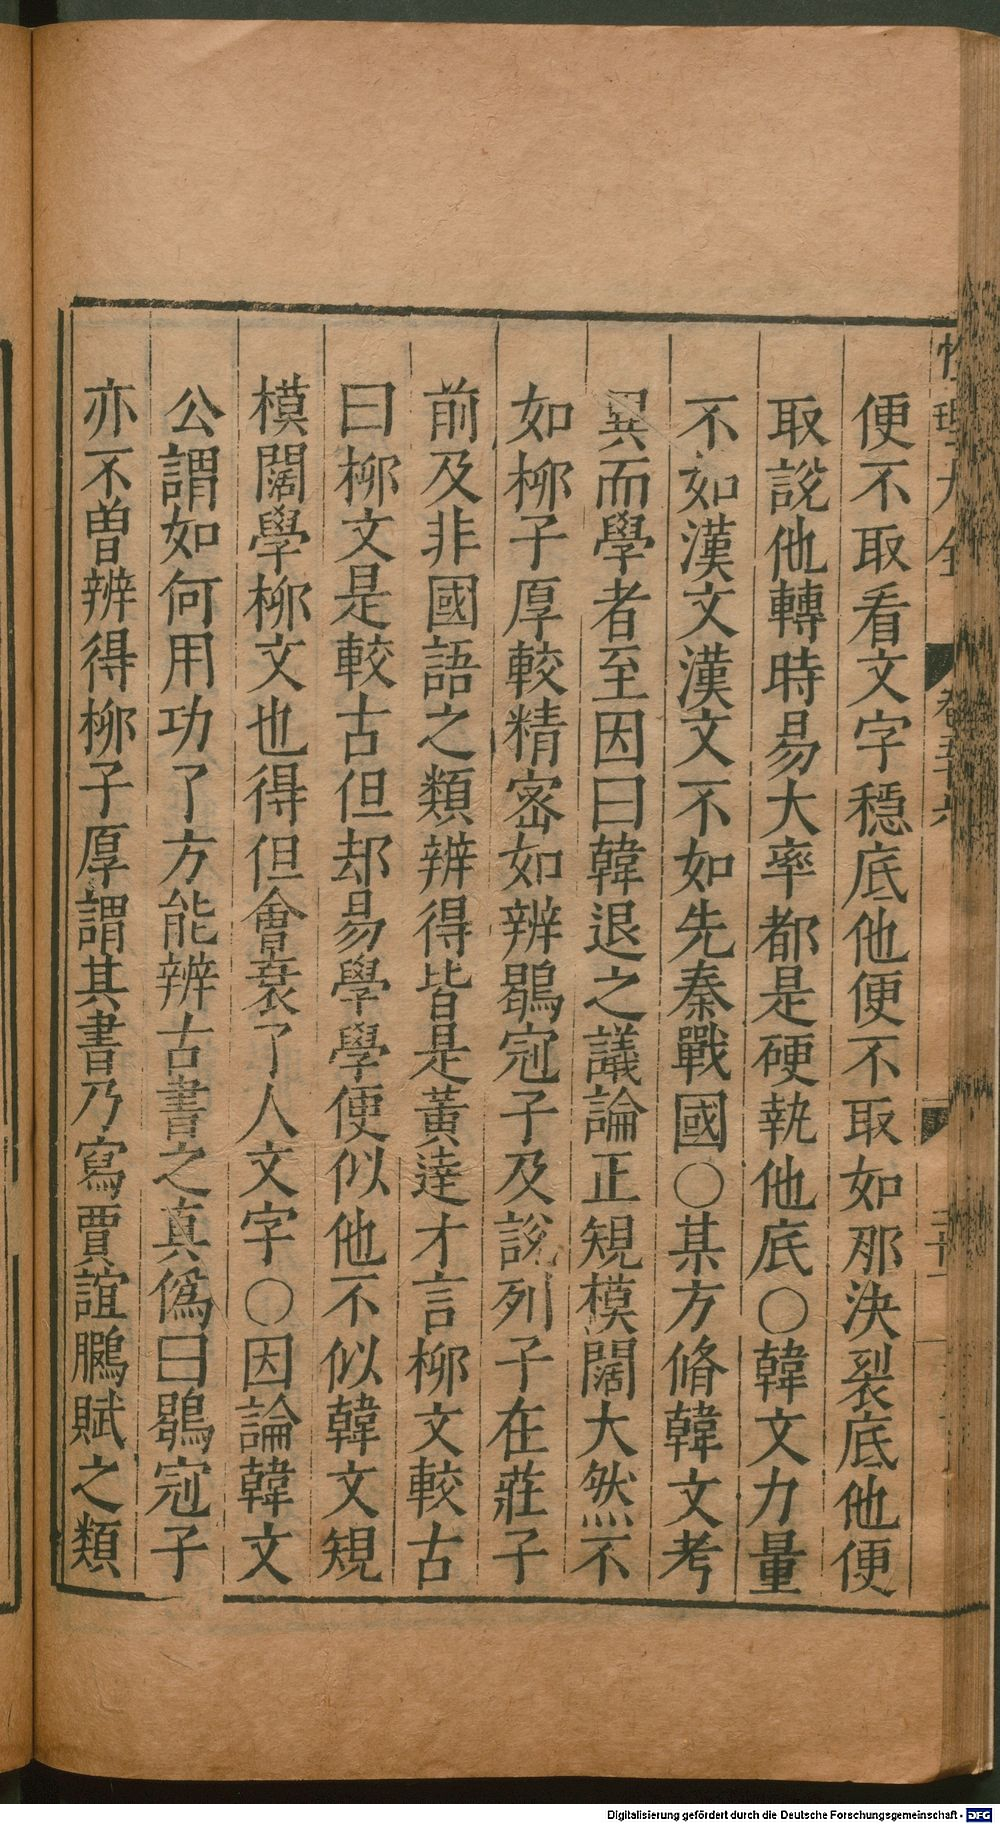 便不取看文字穩底他便不取如那決裂底他便
取說他轉時易大率都是硬執他底○韓文力量
不如漢文漢文不如先秦戰國○某方脩韓文考
異而學者至因曰韓退之議論正規模闊大然不
如柳子厚較精密如辨鶡冠子及說列子在莊子
前及非國語之類辨得皆是黃達才言柳文較古
曰柳文是較古但却易學學便似他不似韓文規
模闊學柳文也得但會衰了人文字○因論韓文
公謂如何用功了方能辨古書之真僞曰鶡冠子
亦不曾辨得柳子厚謂其書乃寫賈誼鵩賦之類
Digitalisierung gefördert durch die Deutsche Forschungsgemeinschaft - DFG